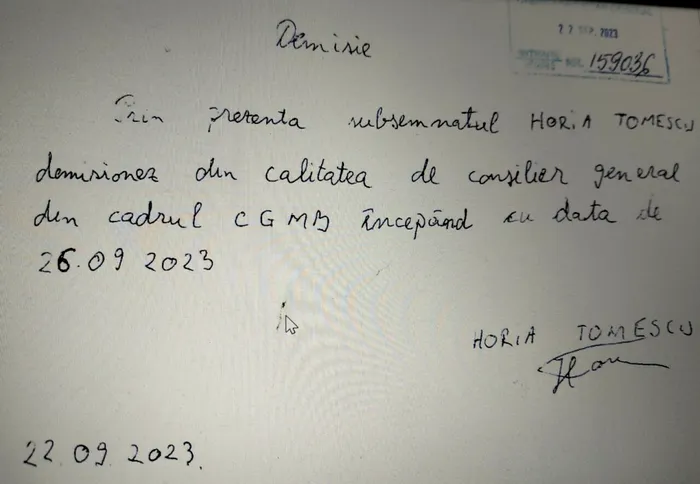 22 SEP. 2023
NR. 159036
Demisie
Prin prezenta subsemnatul HORIA TOMESCU
demisionez din calitatea de consilier general
din cadrul CGMB începând cu data de
26.09 2023
HORIA TOMESCU
22.09.2023.